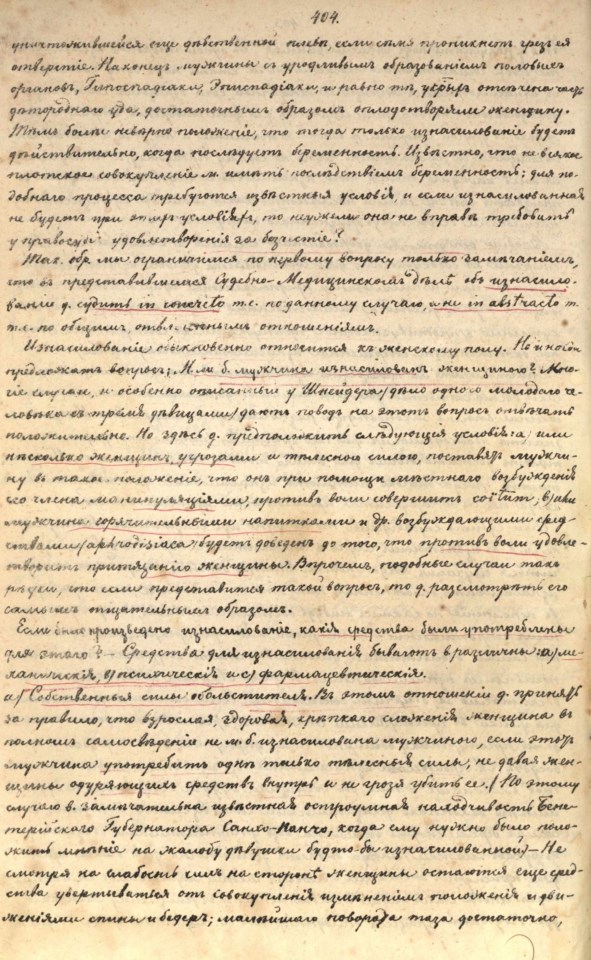 404.
уничтожившейся еще дѣвственной плевы, если сѣмя проникнетъ чрезъ ея
отверстіе. Наконецъ мужчины съ уродливымъ образованіемъ половыхъ
органовъ, Гипоспадіаки, Эписпадіаки, и равно тѣ, у которыхъ отсѣчена часть
дѣтороднаго уда, достаточнымъ образомъ оплодотворяли женщину.
Тѣмъ болѣе невѣрно положеніе, что тогда только изнасилованіе будетъ
дѣйствительно, когда послѣдуетъ беременность. Извѣстно, что не всякое
плотское совокупленіе м. имѣть послѣдствіемъ беременность; для по-
добнаго процесса требуются извѣстныя условія, и если изнасилованная
не будетъ при этихъ условіяхъ, то неужели она не вправѣ требовать
у правосудія удовлетворенія за безчестіе?
Так. обр. мы ограничимся по первому вопросу только замѣчаніемъ,
что въ представившемся Судебно-Медицинскомъ дѣлѣ объ изнасило-
ваніи д. судить in concreto т.е. по данному случаю, а не in abstracto
т.е. по общимъ отвлеченнымъ отношеніямъ.
Изнасилованіе обыкновенно относится къ женскому полу. Но иногда
предложатъ вопросъ; М. ли б. мужчина изнасилованъ женщиною? Мно-
гіе случаи, и особенно описанные у Шнейдера (дѣло одного молодаго че-
ловѣка съ тремя дѣвицами) даютъ поводъ на этотъ вопросъ отвѣчать
положительно. Но здѣсь д. предположить слѣдующія условія: а) или
нѣсколько женщинъ, угрозами и тѣлесной силою, поставятъ мужчи-
ну въ такое положеніе, что онъ при помощи мѣстнаго возбужденія
его члена манипуляціями, противъ воли совершитъ coitum; в) или
мужчина горячительными напитками и др. возбуждающими сред-
ствами (aphrodisiaca) будетъ доведенъ до того, что противъ воли удовле-
творитъ притязанію женщины. Впрочемъ, подобные случаи такъ
рѣдки, что если представится такой вопросъ, то д. разсмотрѣть его
самымъ тщательнымъ образомъ.
Если было произведено изнасилованіе, какія средства были употреблены
для этого? — Средства для изнасилованія бываютъ в различны: а) ме-
ханическія, в) психическія и с) фармацевтическія.
а) Собственныя силы обольстителя. Въ этомъ отношеніи д. принять
за правило, что взрослая, здоровая, крѣпкаго сложенія женщина въ
полномъ самосвѣденіи не м. б. изнасилована мужчиною, если этотъ
мужчина употребитъ однѣ только тѣлесныя силы, не давая жен-
щинѣ одуряющихъ средствъ внутрь и не грозя убить ее. (По этому
случаю в. замѣчательна извѣстная остроумная находчивость
Губернатора Санхо-Панчо, когда ему нужно было поло-
жить мнѣніе на жалобу дѣвушки будто-бы изнасилованной) — Не
смотря на слабость силъ на сторонѣ женщины остаются еще сред-
ства увертываться отъ совокупленія измѣненіемъ положенія и дви-
женіями спины и бедеръ; малѣйшаго поворота таза достаточно,